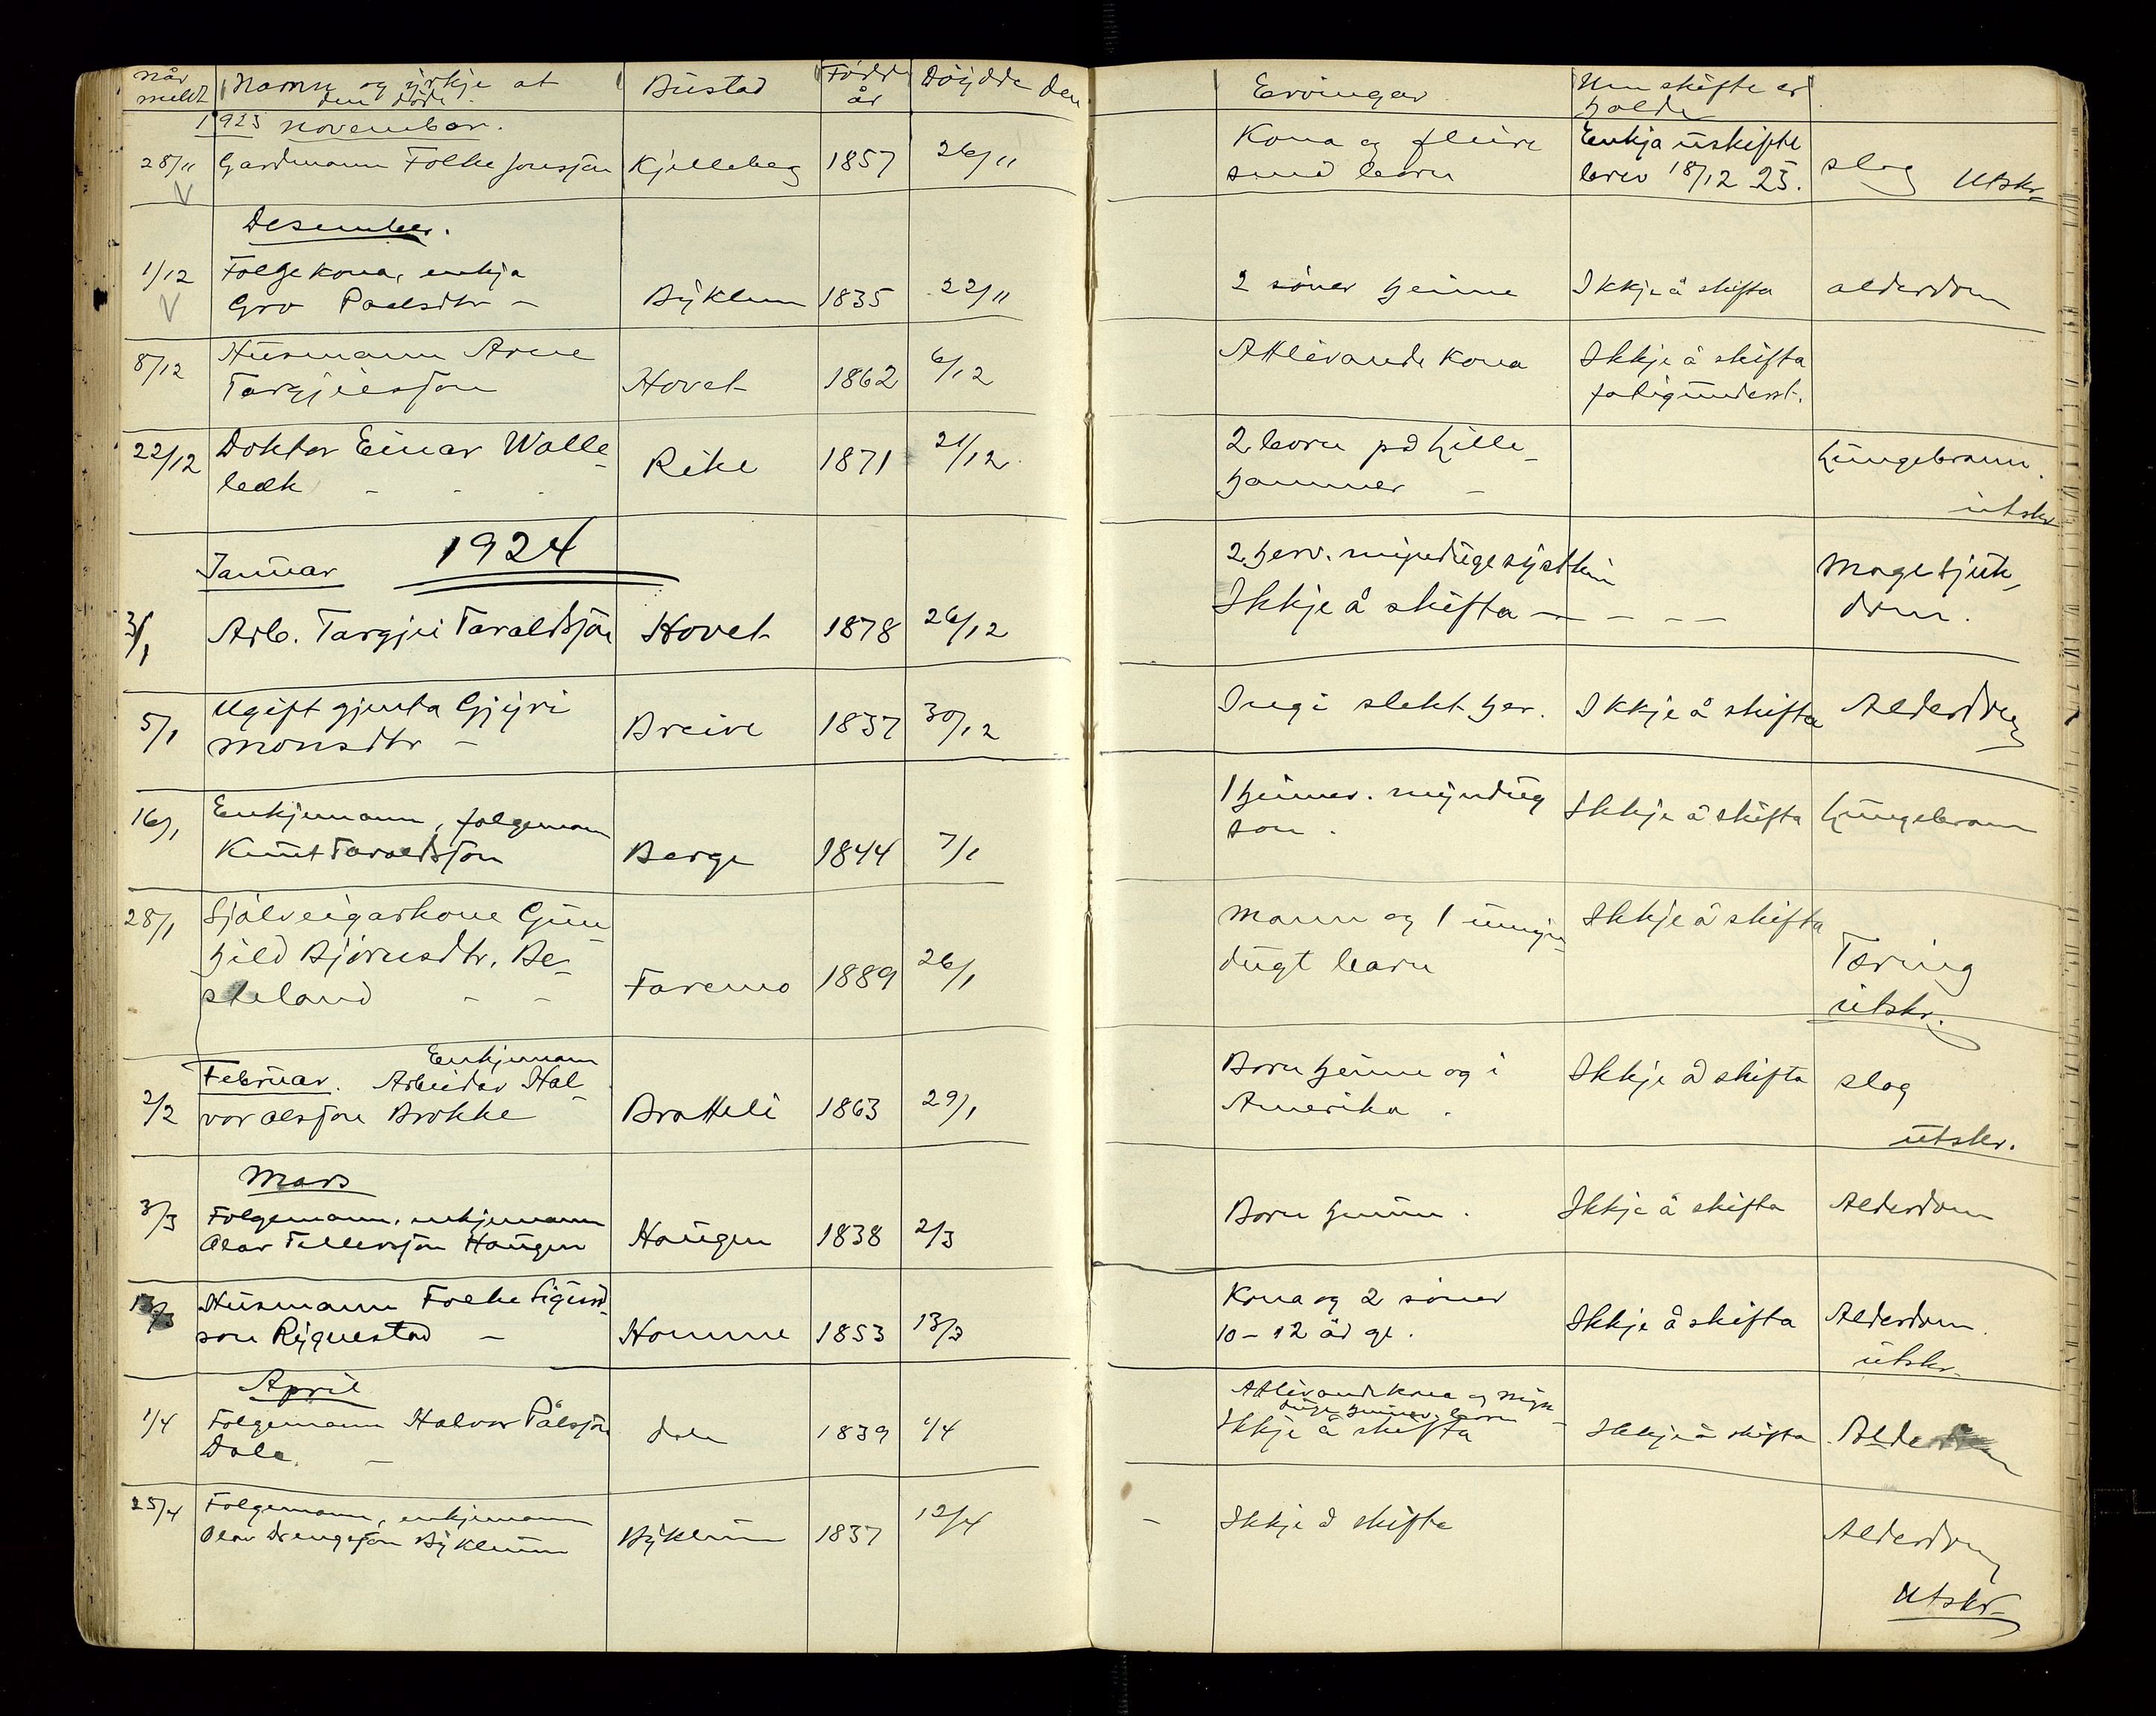 Når meldt Namn og yrkje åt den døde. Bustad Fødde år Døydde den Ervingar Um skifte er halde
1923 november.
28/11 Gardmann Folke Jonsson Kjelleberg 1857 26/11 Kona og fleire Enkja uskifte slag
små born brev 18/12 23. Utskr.
Desember.
1/12 Folgekona, enkja
Gro Paalsdtr - Byklum 1835 22/11 2 søner heime Ikkje å skifta alderdom
8/12 Husmann Arne
Targjeisson Hovet 1862 6/12 Attlevande kona Ikkje å skifta
fatigunderst.
22/12 Doktor Einar Walle-
bæk - - . Rike 1871 21/12. 2 born på Lille- Lungebrann.
hammer - utskr
Januar 1924
3/1 Arb. Targjei Taraldsson Hovet 1878 26/12 2 herv. myndugesystkin Magesjuk-
Ikkje å skifta - - - - dom.
5/1 Ugift gjenta Gjyri
Monsdtr - Breive 1837 30/12 Ingi slekt her. Ikkje å skifta Alderdom
16/1 Enkjemann, folgemann
Knut Taraldsson Berge 1844 7/1 1 heimev. myndug Ikkje å skifta Lungebrann
son.
28/1 Sjølveigarkone Gun-
hild Bjørnsdtr. Be-
steland - - Faremo 1889 26/1 Mann og 1 umyn- Ikkje å skifta Tæring
dugt barn utskr.
Februar. Enkjemann
2/2 Arbeidar Hal-
vor Olsson Brokke Bratteli 1863 29/1 Born heime og i Ikkje å skifta slag
Amerika. utskr.
Mars
3/3 Folgemann, enkjemann
Olav Tellevsson Haugen Haugen 1838 2/3 Born heime. Ikkje å skifta Alderdom
Husmann Folke Sigurd-
son Rygnestad - Homme 1853 13/3 Kona og 2 søner Ikkje å skifta Alderdom.
10 - 12 år gl. utskr.
April
1/4 Folgemann Halvor Pålsson
Dale. - Dale 1839 1/4 Attlevande kona og myn-
duge heimev. born
Ikkje å skifta Ikkje å skifta Alderdom
25/4 Folgemann, enkjemann
Olav Drengsson Byklum Byklum 1837 12/4 - Ikkje å skifta Alderdom
Utskr.